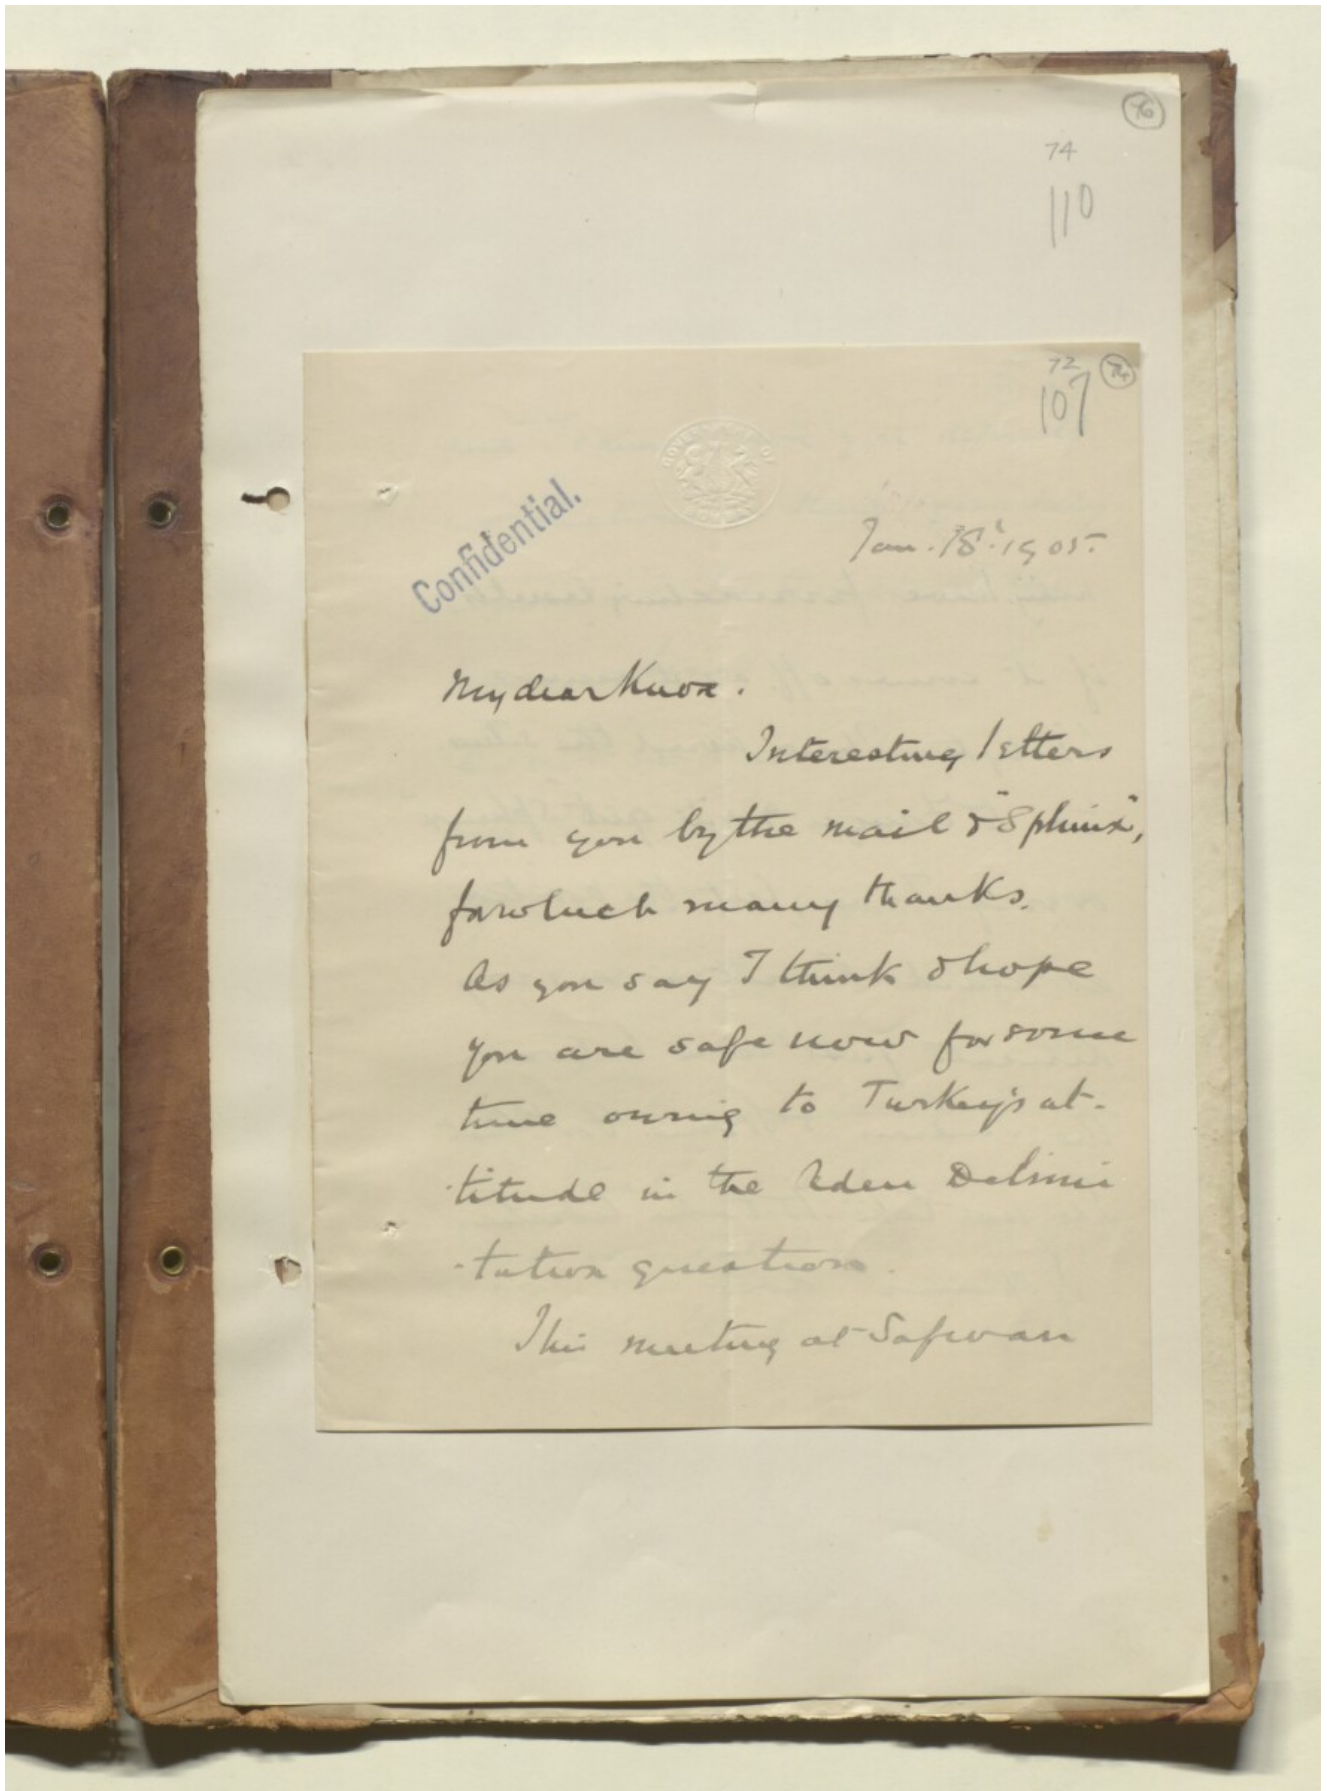 76
74
110
72
107
74
GOVERNMENT OF
BOMBAY
Confidential.
Jan. 18th 1905.
My dear Knox.
Interesting letters
from you by the mail & "Sphinx",
for which many thanks.
As you say I think & hope
you are safe now for some
time owing to Turkey's at-
-titude in the Aden Delimi
-tation question.
This meeting at Safwan